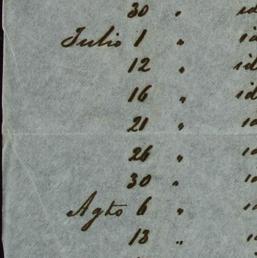 30 " id
Julio 1 " id
12 " id
16 " id
21 " id
26 " id
30 " id
Agto 6 "
13 "